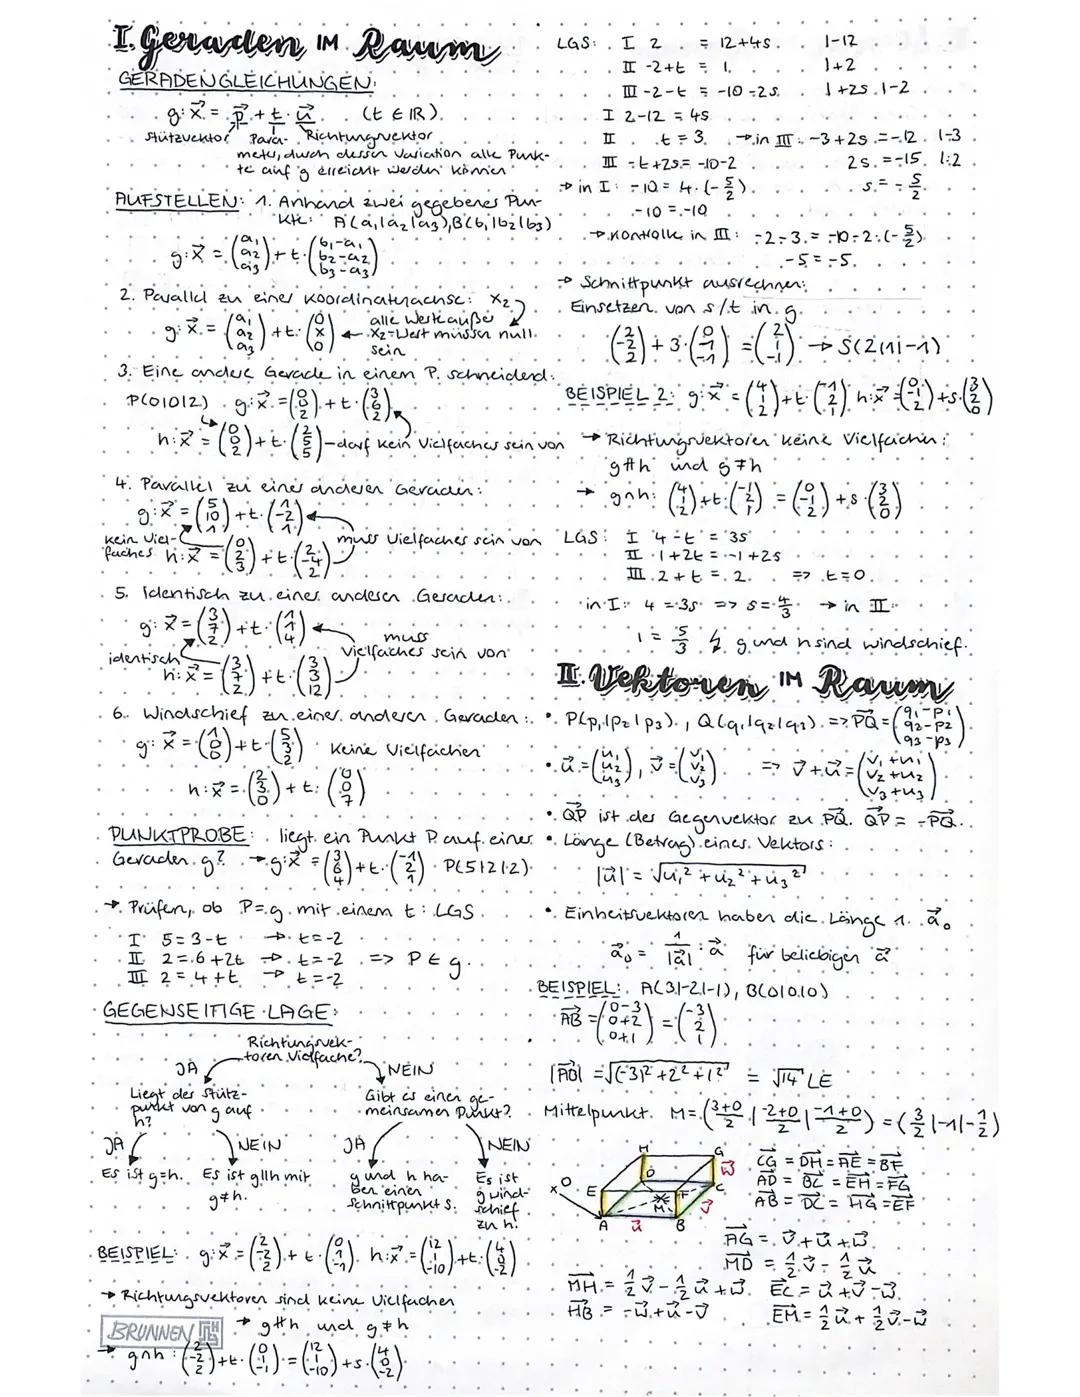 I. Geraden IM Raum
GERADENGLEICHUNGEN:
g: x⃗ = p⃗ + t · u⃗ (t ∈ ℝ)
Stützvektor Para- Richtungsvektor
meter, durch dessen Variation alle Punk-
te auf g erreicht werden können
AUFSTELLEN: 1. Anhand zwei gegebener Pun-
kte: A(a₁|a₂|a₃), B(b₁|b₂|b₃)
g: x⃗ = (a₁ a₂ a₃) + t · (b₁-a₁ b₂-a₂ b₃-a₃)
2. Parallel zu einer Koordinatenachse: x₂
g: x⃗ = (a₁ a₂ a₃) + t · (0 x 0) ← alle Werte außer
x₂-Wert müssen null
sein
3. Eine andere Gerade in einem P. schneidend:
P(0|0|2) g: x⃗ = (0 0 2) + t · (3 6 2)
h: x⃗ = (0 0 2) + t · (2 5 5) - darf kein Vielfaches sein von
4. Parallel zu einer anderen Geraden:
g: x⃗ = (5 10 1) + t · (1 -2 1)
kein Viel-
faches h: x⃗ = (0 2 3) + t · (2 -4 2) muss Vielfaches sein von
5. Identisch zu einer anderen Geraden:
g: x⃗ = (3 7 2) + t · (1 1 4)
identisch muss
Vielfaches sein von
h: x⃗ = (3 7 2) + t · (3 3 12)
6. Windschief zu einer anderen Geraden:
g: x⃗ = (1 0 0) + t · (5 3 2) Keine Vielfachen
h: x⃗ = (2 3 0) + t · (0 0 7)
PUNKTPROBE: liegt ein Punkt P auf einer
Geraden g? → g: x⃗ = (3 6 4) + t · (-1 2 1) P(5|2|2)
→ Prüfen, ob P = g mit einem t: LGS
I 5 = 3-t → t = -2
II 2 = 6+2t → t = -2 => P ∈ g
III 2 = 4+t → t = -2
GEGENSEITIGE LAGE:
Richtungsvek-
toren Vielfache?
JA NEIN
Liegt der Stütz-
punkt von g auf
h?
Gibt es einen ge-
meinsamen Punkt?
JA NEIN JA NEIN
Es ist g=h.
Es ist g||h mit
g≠h.
g und h ha-
ben einen
Schnittpunkt S.
Es ist
g wind-
schief
zu h.
BEISPIEL: g: x⃗ = (2 -2 2) + t · (0 1 -1) h: x⃗ = (12 1 -10) + t · (4 0 -2)
→ Richtungsvektoren sind keine Vielfachen
BRUNNEN
→ g∦h und g≠h
→ g∩h: (2 -2 2) + t · (0 1 -1) = (12 1 -10) + s · (4 0 -2)
LGS: I 2 = 12+4s |-12
II -2+t = 1 |+2
III -2-t = -10-2s |+2s |-2
I 2-12 = 4s
II t = 3 → in III: -3+2s = -12 |-3
III -t+2s = -10-2 2s = -15 |:2
→ in I: -10 = 4 · (-5/2) s = -5/2
-10 = -10
→ Kontrolle in III: -2-3 = -10-2·(-5/2)
-5 = -5
→ Schnittpunkt ausrechnen:
Einsetzen von s/t in g
(2 -2 2) + 3 · (0 1 -1) = (2 1 -1) → S(2|1|-1)
BEISPIEL 2: g: x⃗ = (4 1 2) + t · (-1 2 1) h: x⃗ = (0 -1 2) + s · (3 2 0)
→ Richtungsvektoren keine Vielfachen:
g∦h und g≠h
→ g∩h: (4 1 2) + t · (-1 2 1) = (0 -1 2) + s · (3 2 0)
LGS: I 4-t = 3s
II 1+2t = -1+2s
III 2+t = 2 => t=0
in I: 4 = 3s => s = 4/3 → in II:
1 = 5/3 ↯ g und h sind windschief.
II. Vektoren IM Raum
• P(p₁|p₂|p₃), Q(q₁|q₂|q₃) => PQ⃗ = (q₁-p₁ q₂-p₂ q₃-p₃)
• u⃗ = (u₁ u₂ u₃), v⃗ = (v₁ v₂ v₃) => v⃗+u⃗ = (v₁+u₁ v₂+u₂ v₃+u₃)
• QP⃗ ist der Gegenvektor zu PQ⃗. QP⃗ = -PQ⃗.
• Länge (Betrag) eines Vektors:
|u⃗| = √(u₁² + u₂² + u₃²)
• Einheitsvektoren haben die Länge 1. a⃗₀
a⃗₀ = 1/|a⃗| · a⃗ für beliebigen a⃗
BEISPIEL: A(3|-2|-1), B(0|0|0)
AB⃗ = (0-3 0+2 0+1) = (-3 2 1)
|AB⃗| = √((-3)² + 2² + 1²) = √14 LE
Mittelpunkt M = (3+0/2 | -2+0/2 | -1+0/2) = (3/2 | -1 | -1/2)
H G
D w⃗
E F C
x O M v⃗
A u⃗ B
CG⃗ = DH⃗ = AE⃗ = BF⃗
AD⃗ = BC⃗ = EH⃗ = FG⃗
AB⃗ = DC⃗ = HG⃗ = EF⃗
AG⃗ = v⃗+u⃗+w⃗
MD⃗ = 1/2 v⃗ - 1/2 u⃗
MH⃗ = 1/2 v⃗ - 1/2 u⃗ + w⃗ EC⃗ = u⃗+v⃗-w⃗
HB⃗ = -w⃗+u⃗-v⃗ EM⃗ = 1/2 u⃗ + 1/2 v⃗ - w⃗